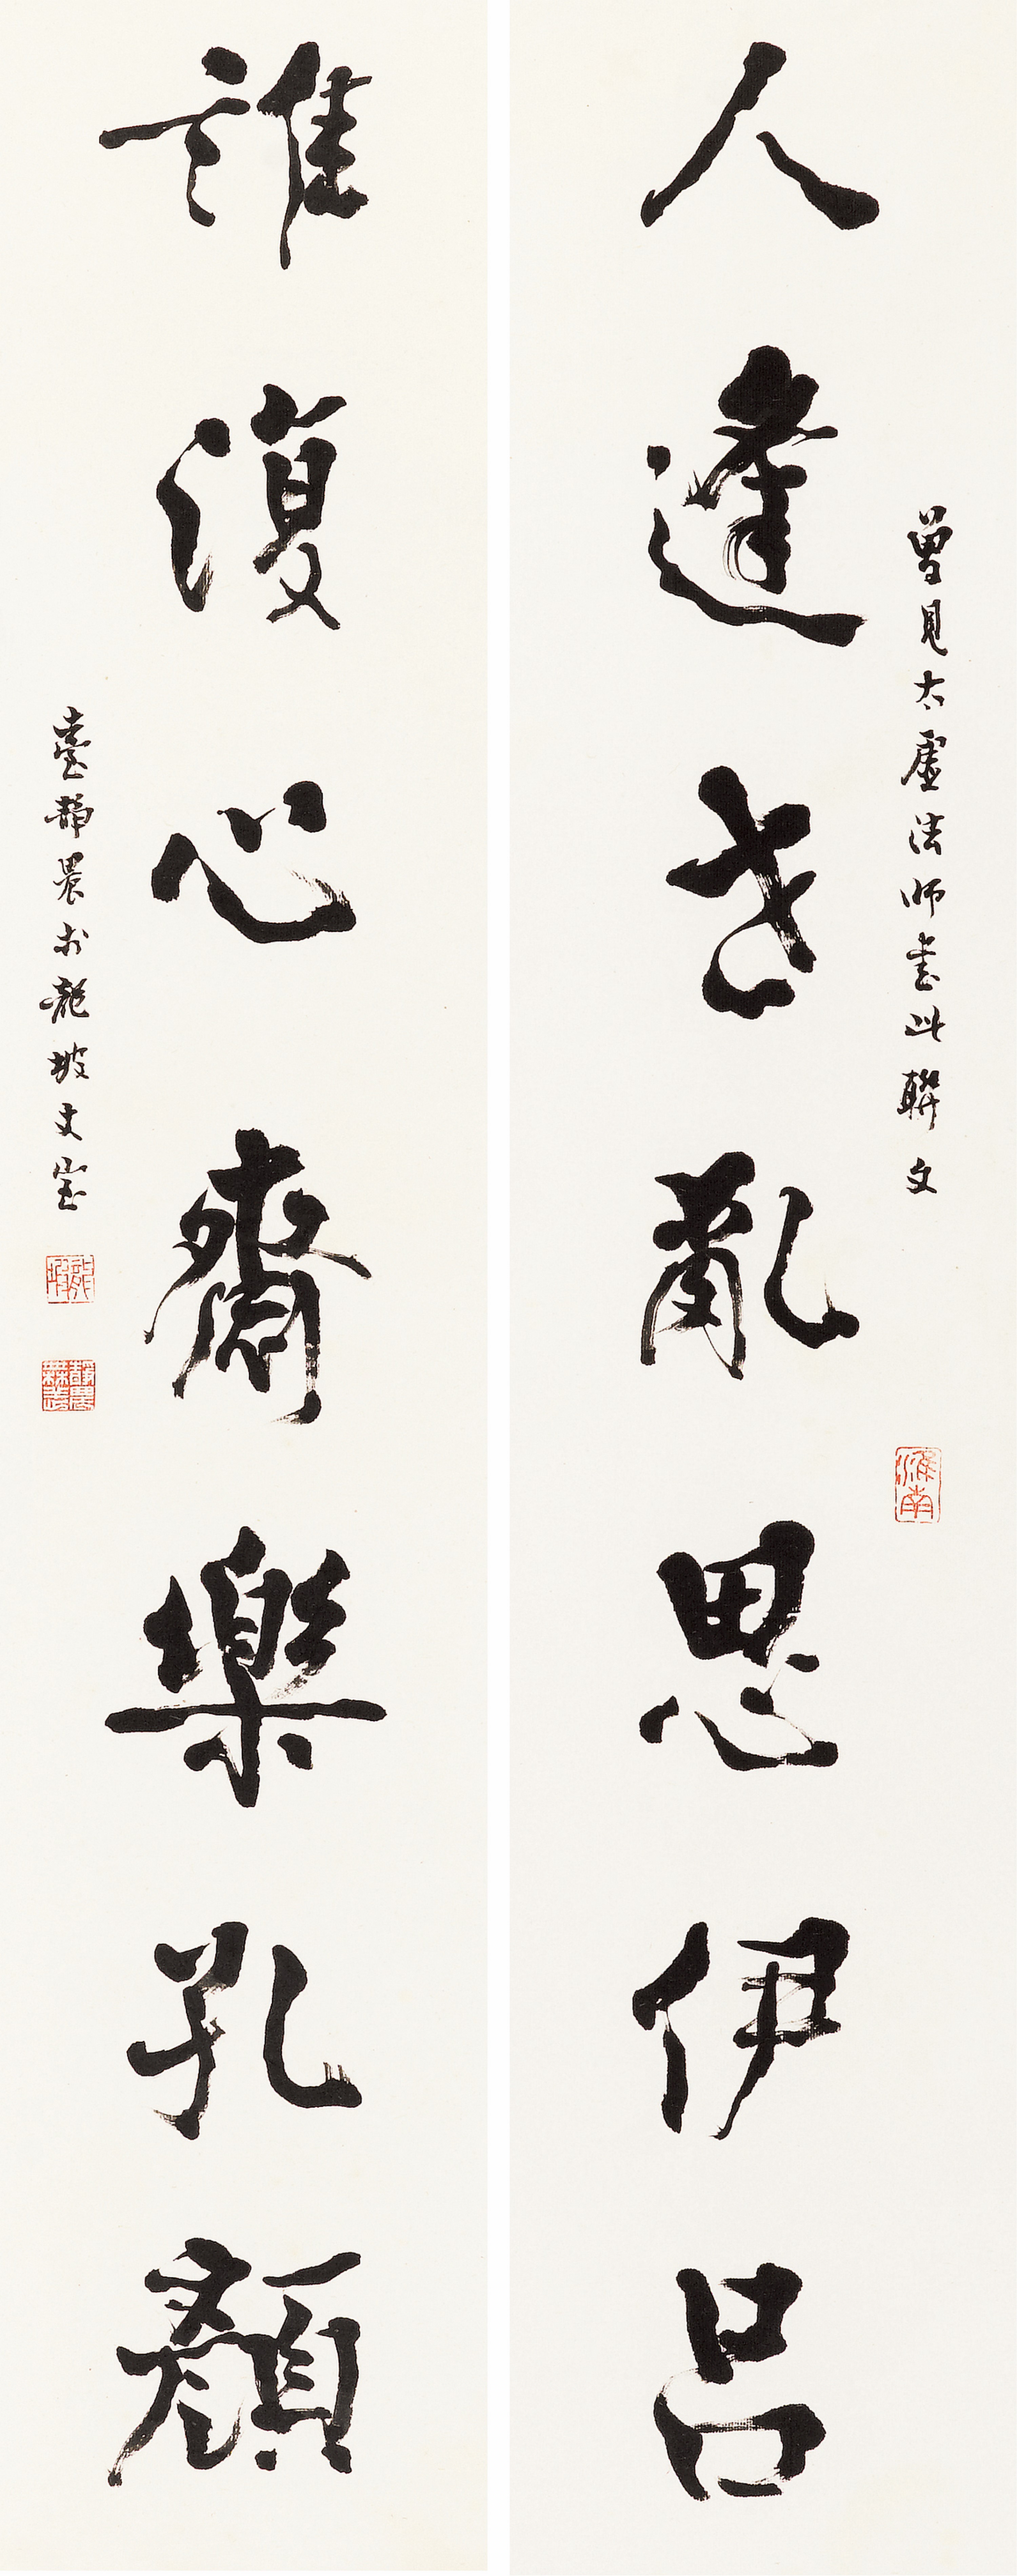 曾見太虛法師書此聯文
人逢世亂思伊呂
淮南
誰復心齋樂孔顏
臺靜農於龍坡丈室
龍坡
靜農無恙